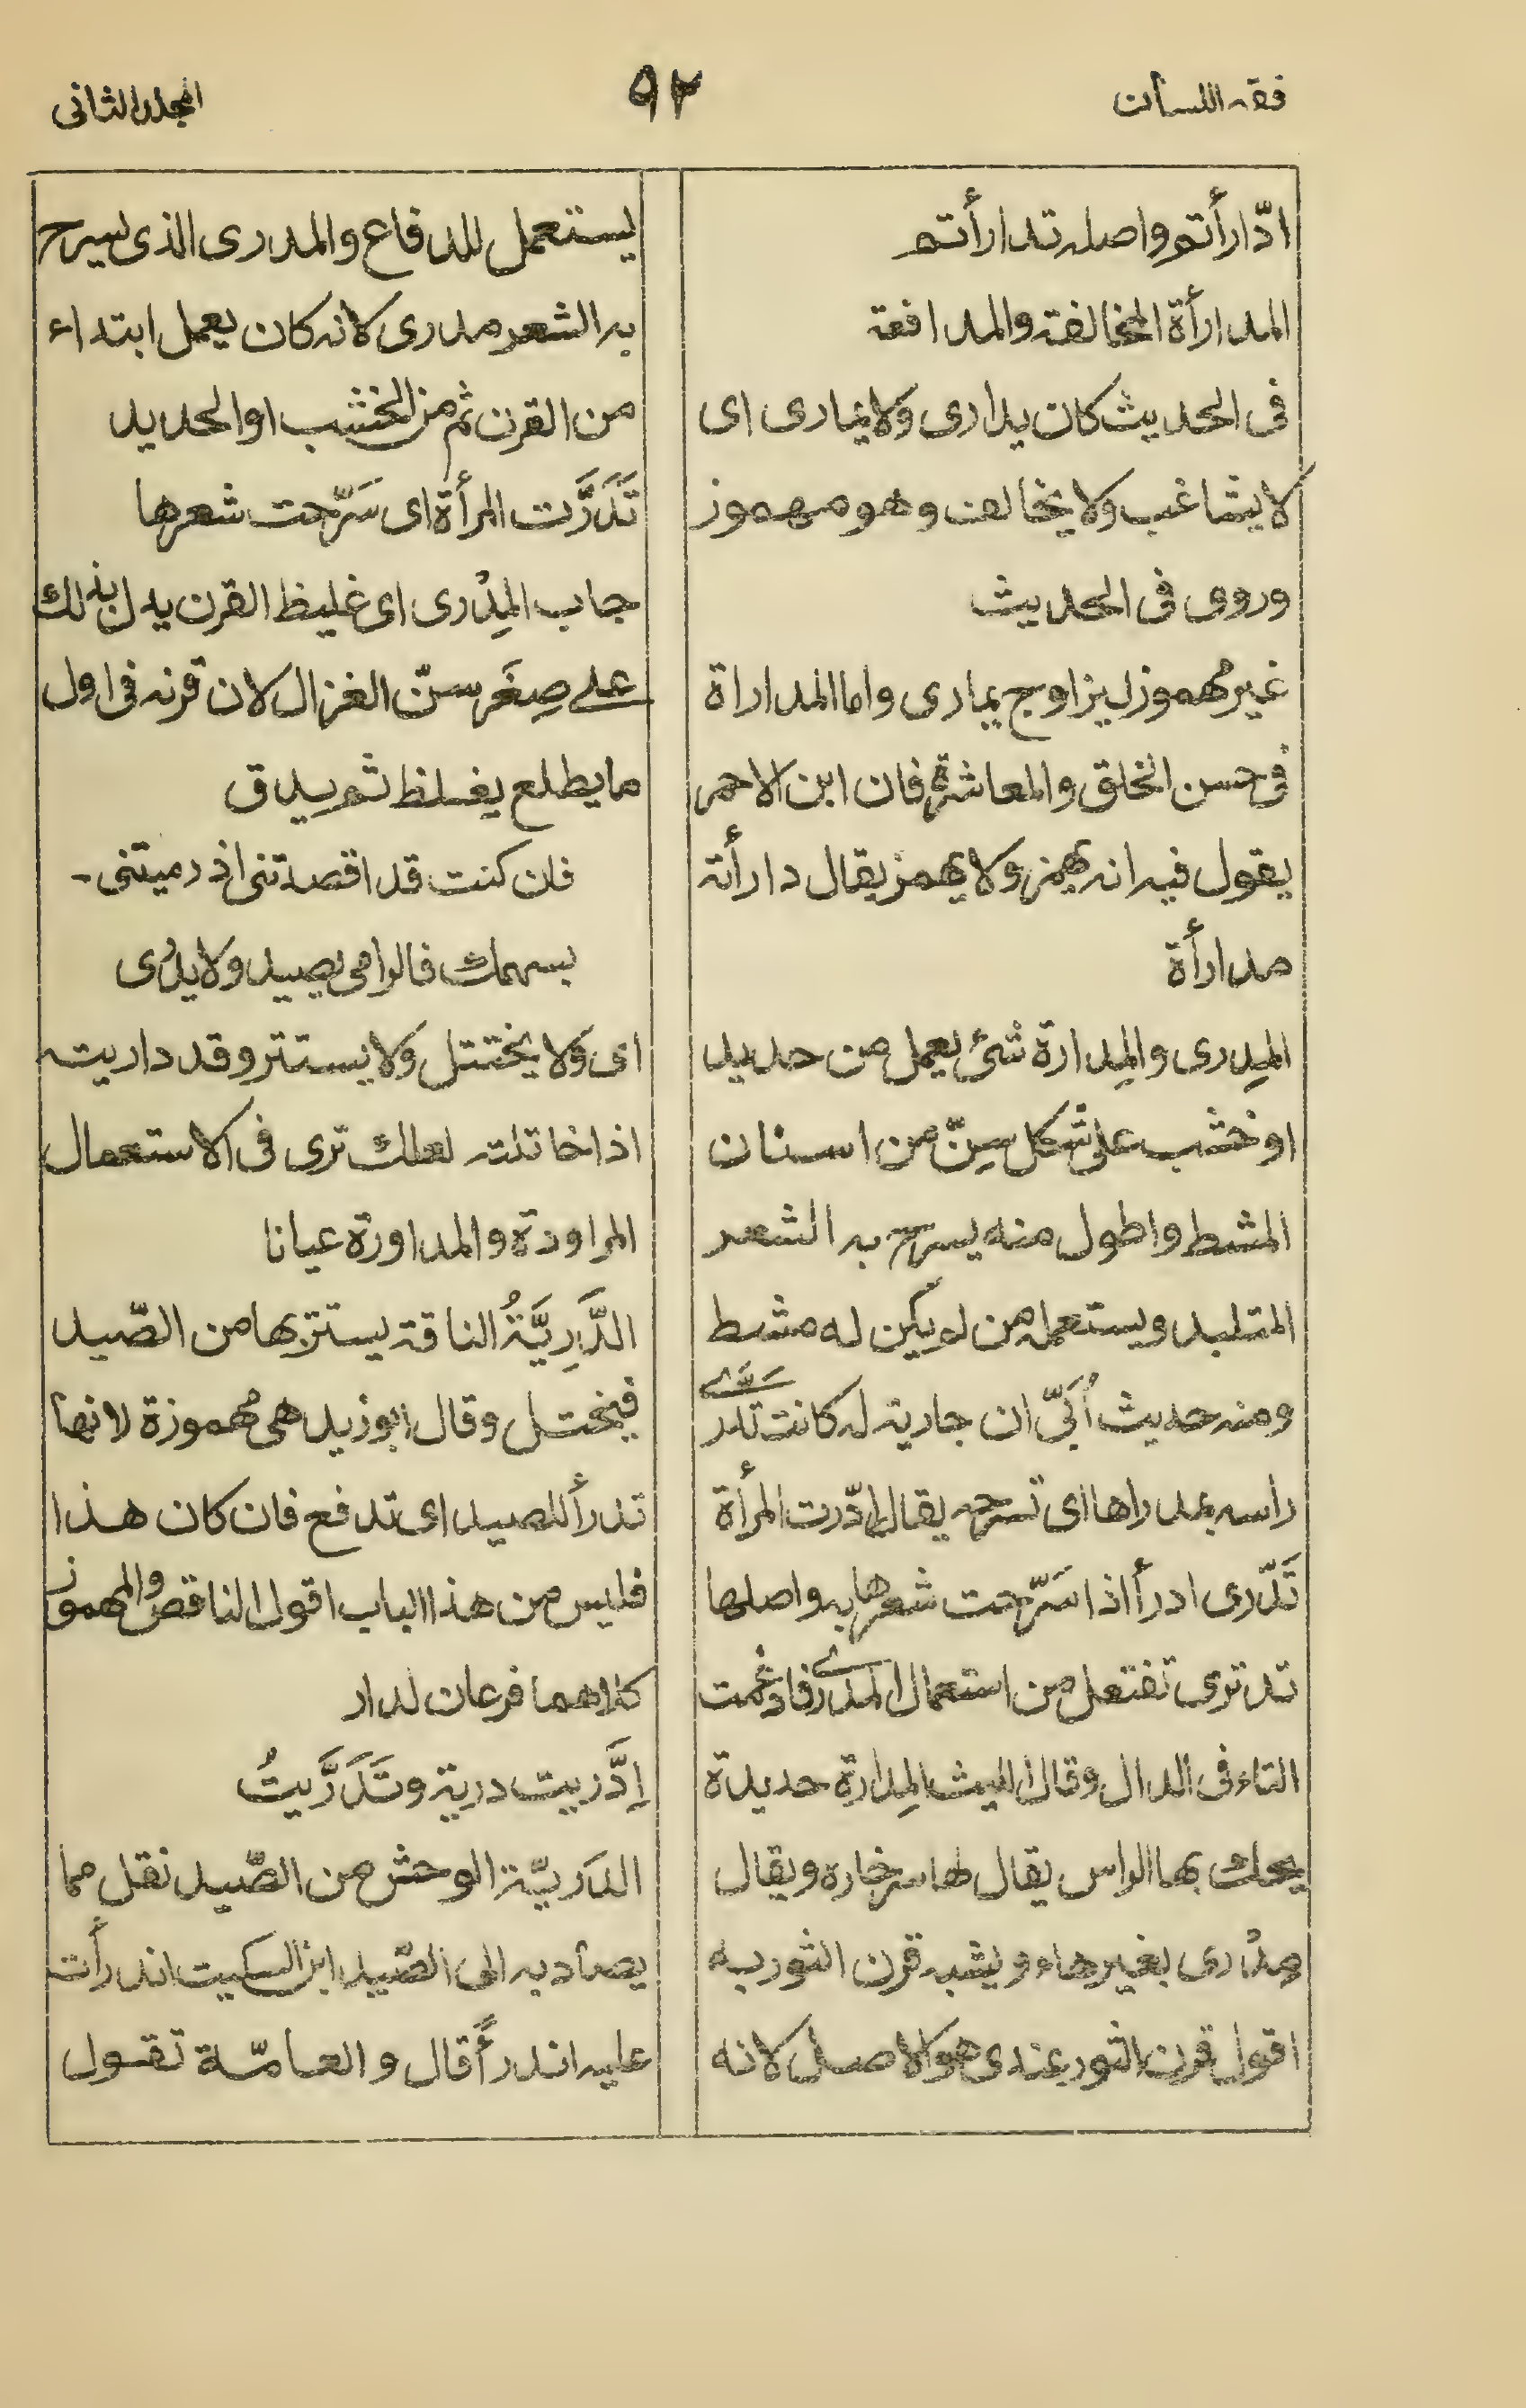 فقہ اللسان
۹۲
المجلد الثانی
ادّارأتم واصلہ تدارأتم
المدارأة المخالفتہ والمدافعۃ
فی الحدیث کان یداری ولا یماری ای
لا یشاغب ولا یخالف وھو مھموز
وروی فی الحدیث
غیر مُھموز لیزاوج یماری واما المداراة
فی حسن الخلق والمعاشرة فان ابن الاحمر
یقول فیہ انہ یھمز ولا یھمز یقال دارأتہ
مدارأة
المِدری والمِدارة شئ یعمل من حدید
او خشب علی شکل سِنّ من اسنان
المشط واطول منه یسرح بہ الشعر
المتلبد ویستعملہ من لم یکن لہ مشط
ومنہ حدیث اُبَیّ ان جاریتہ لہ کانت تدّری
راسہ بمدراھا ای تسرحہ یقال ادّرت المرأة
تَدّری ادرأ اذا سَرّحت شعرھا بہ واصلھا
تدتری تفتعل من استعمال المدری فادغمت
التاء فی الدال وقال اللیث المِدارة حدیدة
یحك بھا الراس یقال لھا سرخارہ ویقال
مِدْری بغیر ھاء ویشبہ قرن الثور بہ
اقول قرن الثور عندی ھو الاصل لانه
یستعمل للدفاع والمدری الذی یسرح
بہ الشعر مدری کانہ کان یعمل ابتداء
من القرن ثم من الخشب او الحدید
تَدَرَّت المرأة ای سَرّحت شعرھا
جاب المِدْری ای غلیظ القرن یدل بذلك
علی صِغَر سنّ الغزال لان قرنہ فی اول
ما یطلع یغلظ ثم یدق
فان کنت قد اقصدتنی اذ رمیتنی۔
بسھمك فالرامی یصید ولا یدری
ای ولا یختتل ولا یستتر وقد داریتہ
اذا خاتلتہ لعلك تری فی الاستعمال
المراودة والمداورة عیانا
الدَّرِیَّۃُ الناقۃ یستتر بھا من الصّید
فیختل وقال ابوزید ھی مُھموزة لانھا
تدرأ للصید ای تدفع فان کان ھذا
فلیس من ھذا الباب اقول الناقص والمھموز
کلاھما فرعان لدار
اِدَّرَیت دریۃ وتَدَرَّیتُ
الدَریّۃ الوحش من الصّید نقل مما
یصاد بہ الی الصّید ابن السکیت اندرأت
علیہ اندرأً قال والعامّة تقول